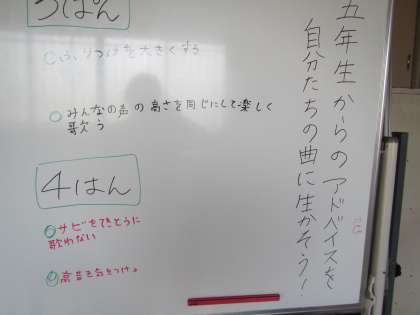 五年生からのアドバイスを
自分たちの曲に生かそう！
3はん
ふりつけを大きくする
みんなの声の高さを同じにして楽しく
歌う
4はん
サビをてきとうに
歌わない
高音を気をつける